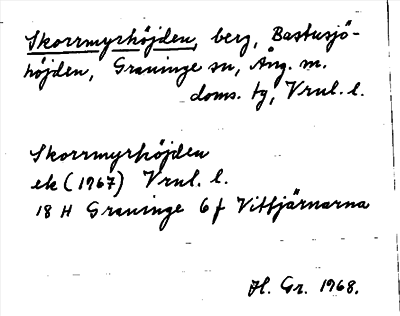 Skorrmyrhöjden, berg, Bastusjö-
höjden, Graninge sn, Ång. m.
doms. tg, Vrnl. l.
Skorrmyrhöjden
ek (1967) Vrnl. l.
18 H Graninge 6 f Vittjärnarna
H. Gr. 1968.